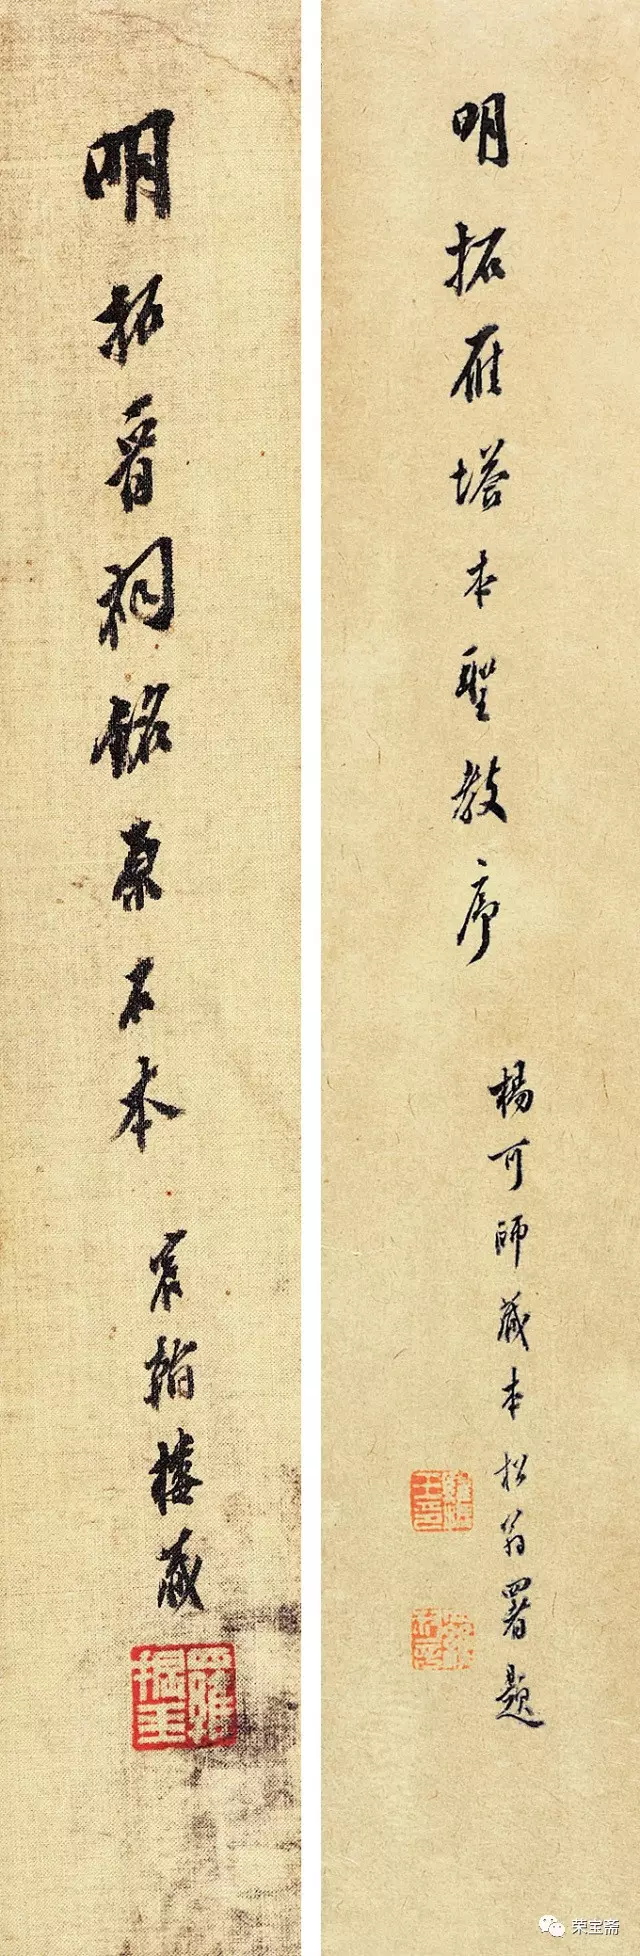 明拓晉祠銘原石本
宸翰樓藏
羅振玉
明拓雁塔本聖教序
楊可師藏本松翁署題
荣宝斋